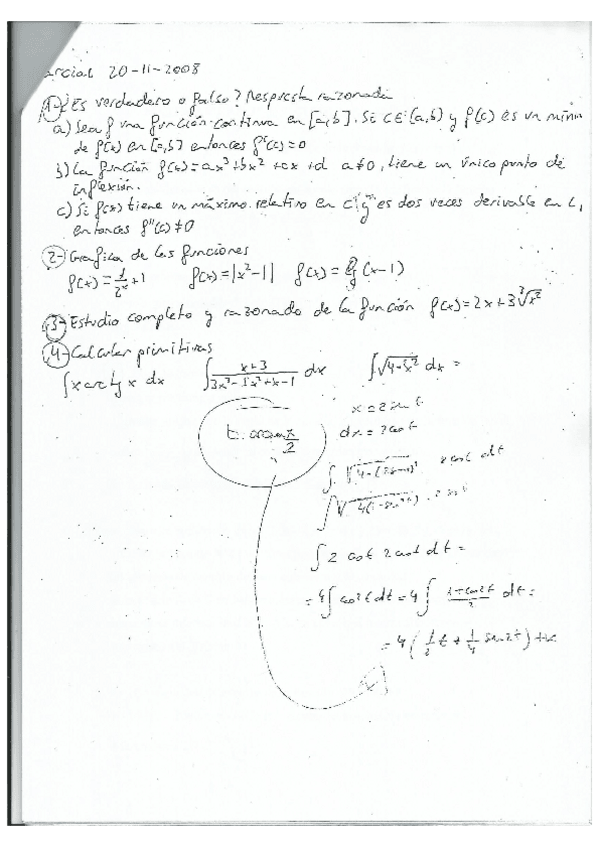 arcial 20-11-2008
1- ¿Es verdadero o falso? Respuesta razonada
a) Sea f una función continua en [a,b]. Si c∈(a,b) y f(c) es un mínimo
de f(x) en [a,b] entonces f'(c)=0
b) La función f(x)=ax³+bx²+cx+d a≠0, tiene un único punto de
inflexión.
c) Si f(x) tiene un máximo relativo en c y es dos veces derivable en c,
entonces f''(c)≠0
2- Grafica de las funciones
f(x)=1/2ˣ+1 f(x)=|x²-1| f(x)= (x-1)
3- Estudio completo y razonado de la función f(x)=2x+3∛x²
4- Calcular primitivas
∫x arctg x dx ∫(x+3)/(3x³-3x²+x-1) dx ∫√(4-x²) dx =
x=2sen t
dx=2cost
t= x/2
∫√(4-( )²) 2cost dt
∫√(4(1-sen²t))
∫2 cost 2cost dt=
=4∫cos²t dt=4∫(1+cos2t)/2 dt=
=4(1/2 t+1/4 sen2t)+k